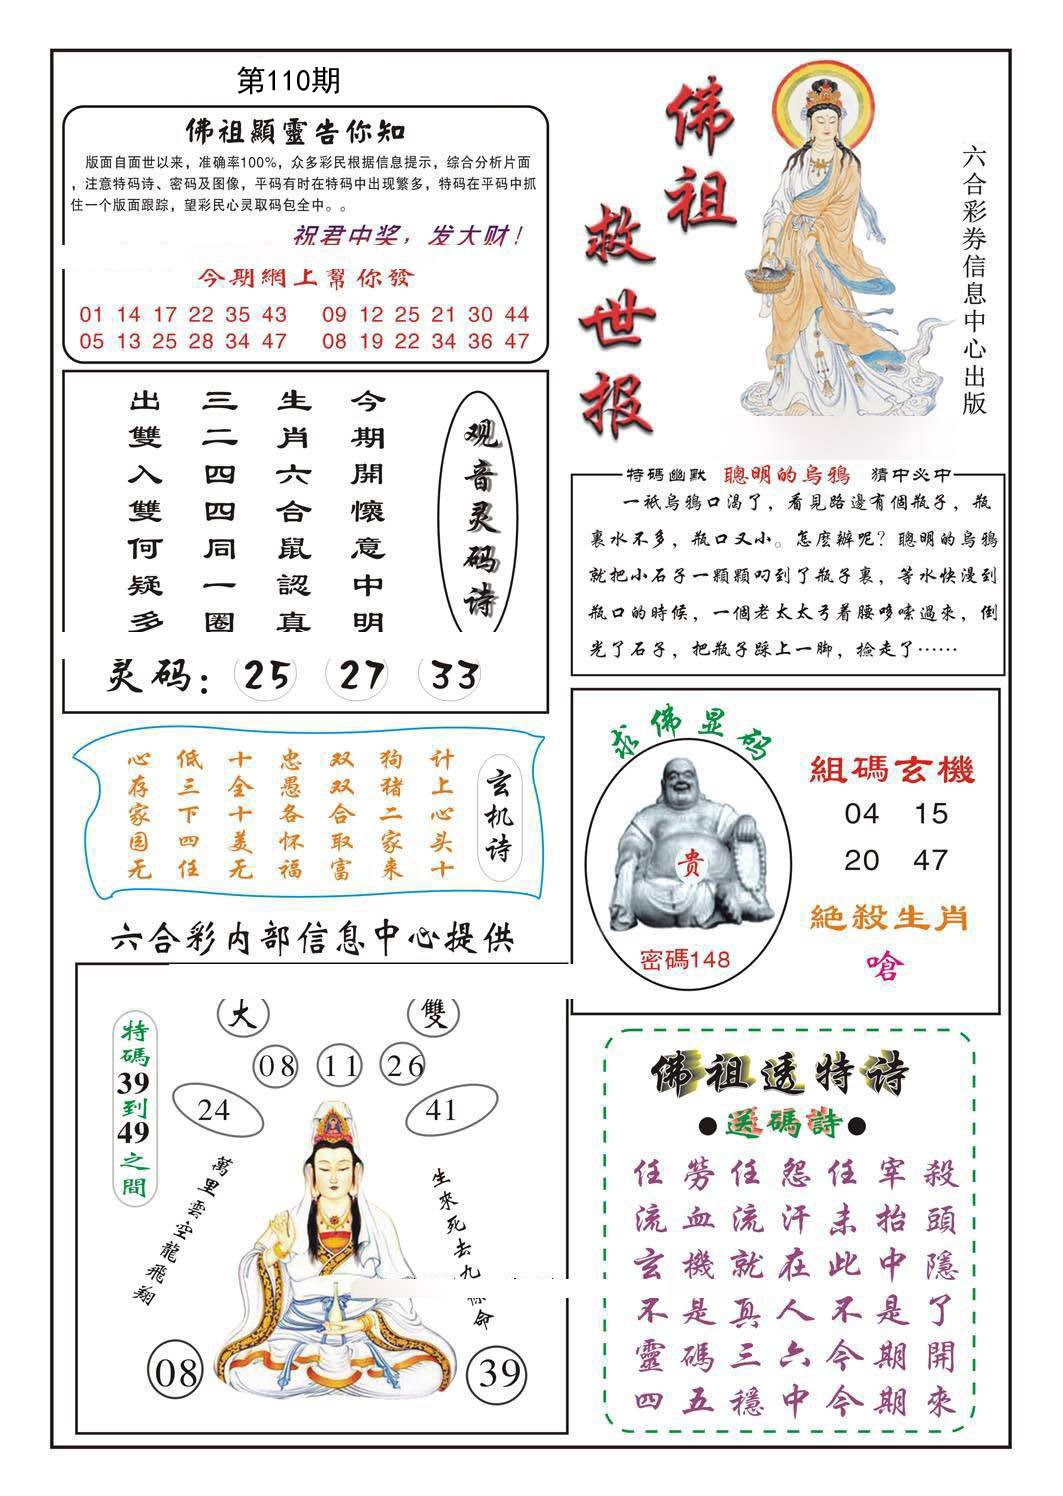 第110期
佛祖顯靈告你知
版面自面世以来，准确率100%，众多彩民根据信息提示，综合分析片面
，注意特码诗、密码及图像，平码有时在特码中出现繁多，特码在平码中抓
住一个版面跟踪，望彩民心灵取码包全中。。
祝君中奖，发大财！
今期網上幫你發
01 14 17 22 35 43 09 12 25 21 30 44
05 13 25 28 34 47 08 19 22 34 36 47
佛祖
救世报
六合彩券信息中心出版
观音灵码诗
今期開懷意中明
生肖六合鼠認真
三二四四同一圈
出雙入雙何疑多
灵码：25 27 33
特碼幽默 聰明的烏鴉 猜中必中
一衹烏鴉口渴了，看見路邊有個瓶子，瓶
裏水不多，瓶口又小。怎麼辦呢？聰明的烏鴉
就把小石子一顆顆叼到了瓶子裏，等水快漫到
瓶口的時候，一個老太太弓着腰哆嗦過來，倒
光了石子，把瓶子踩上一脚，撿走了……
玄机诗
计上心头十
狗猪二家来
双双合取富
忠愚各怀福
十全十美无
低三下四任
心存家园无
求佛显码
贵
密碼148
組碼玄機
04 15
20 47
絕殺生肖
嗆
六合彩内部信息中心提供
特碼39到49之間
大 雙
08 11 26
24 41
萬里雲空龍飛翔
生來死去九
命
08 39
佛祖透特诗
●送碼詩●
任勞任怨任宰殺
流血流汗未抬頭
玄機就在此中隱
不是真人不是了
靈碼三六今期開
四五穩中今期來